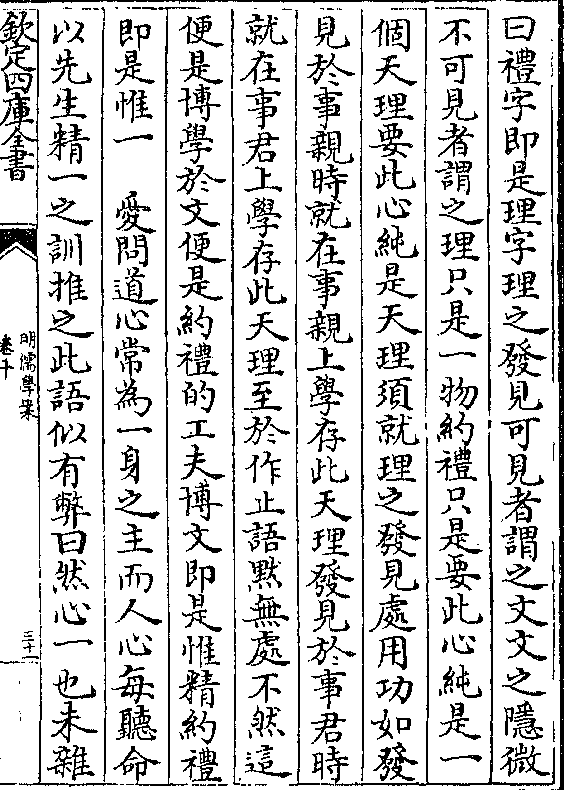 曰禮字即是理字理之發見可見者謂之文文之隱微
不可見者謂之理只是一物約禮只是要此心純是一
個天理要此心純是天理須就理之發見處用功如發
見於事親時就在事親上學存此天理發見於事君時
就在事君上學存此天理至於作止語黙無處不然這
便是博學於文便是約禮的工夫博文即是惟精約禮
即是惟一　愛問道心常為一身之主而人心每聽命
以先生精一之訓推之此語似有弊曰然心一也未雜
欽定四庫全書
明儒學案
卷十
三十一